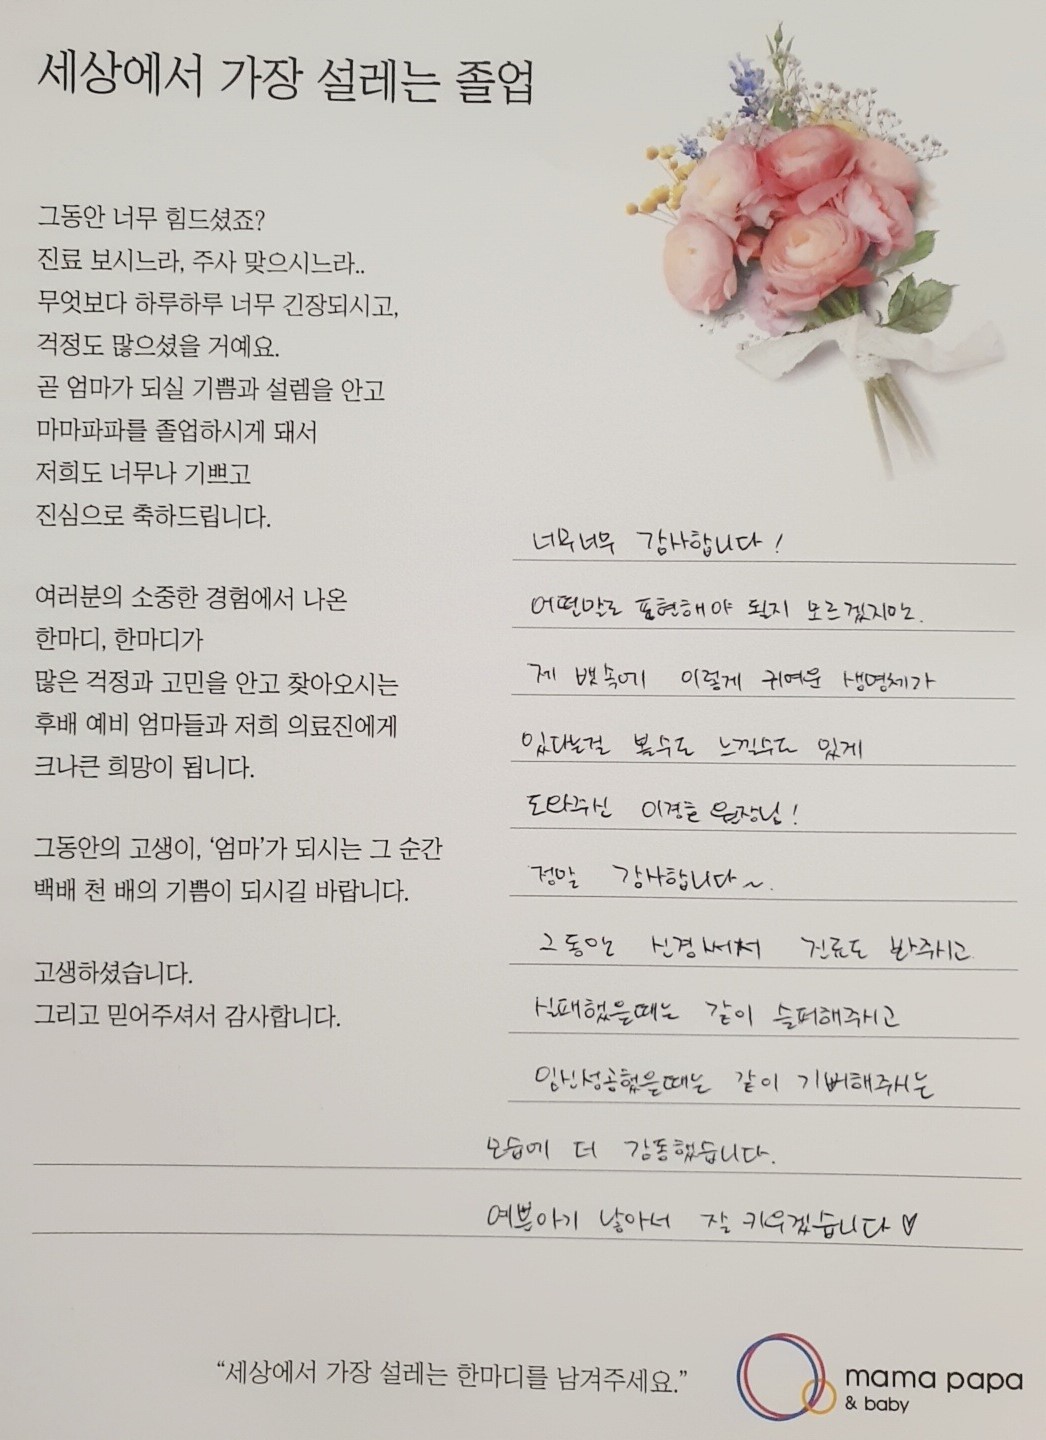 세상에서 가장 설레는 졸업
그동안 너무 힘드셨죠?
진료 보시느라, 주사 맞으시느라..
무엇보다 하루하루 너무 긴장되시고,
걱정도 많으셨을 거예요.
곧 엄마가 되실 기쁨과 설렘을 안고
마마파파를 졸업하시게 돼서
저희도 너무나 기쁘고
진심으로 축하드립니다.
여러분의 소중한 경험에서 나온
한마디, 한마디가
많은 걱정과 고민을 안고 찾아오시는
후배 예비 엄마들과 저희 의료진에게
크나큰 희망이 됩니다.
그동안의 고생이, ‘엄마’가 되시는 그 순간
백배 천 배의 기쁨이 되시길 바랍니다.
고생하셨습니다.
그리고 믿어주셔서 감사합니다.
너무너무 감사합니다!
어떤말로 표현해야 될지 모르겠지만.
제 뱃속에 이렇게 귀여운 생명체가
있다는걸 볼수도 느낄수도 있게
도와주신 이경훈 원장님!
정말 감사합니다~.
그동안 신경써서 진료도 봐주시고
실패했을때는 같이 슬퍼해주시고
임신성공했을때는 같이 기뻐해주시는
모습에 더 감동했습니다.
예쁜아기 낳아서 잘 키우겠습니다♡
“세상에서 가장 설레는 한마디를 남겨주세요.”
mama papa
& baby